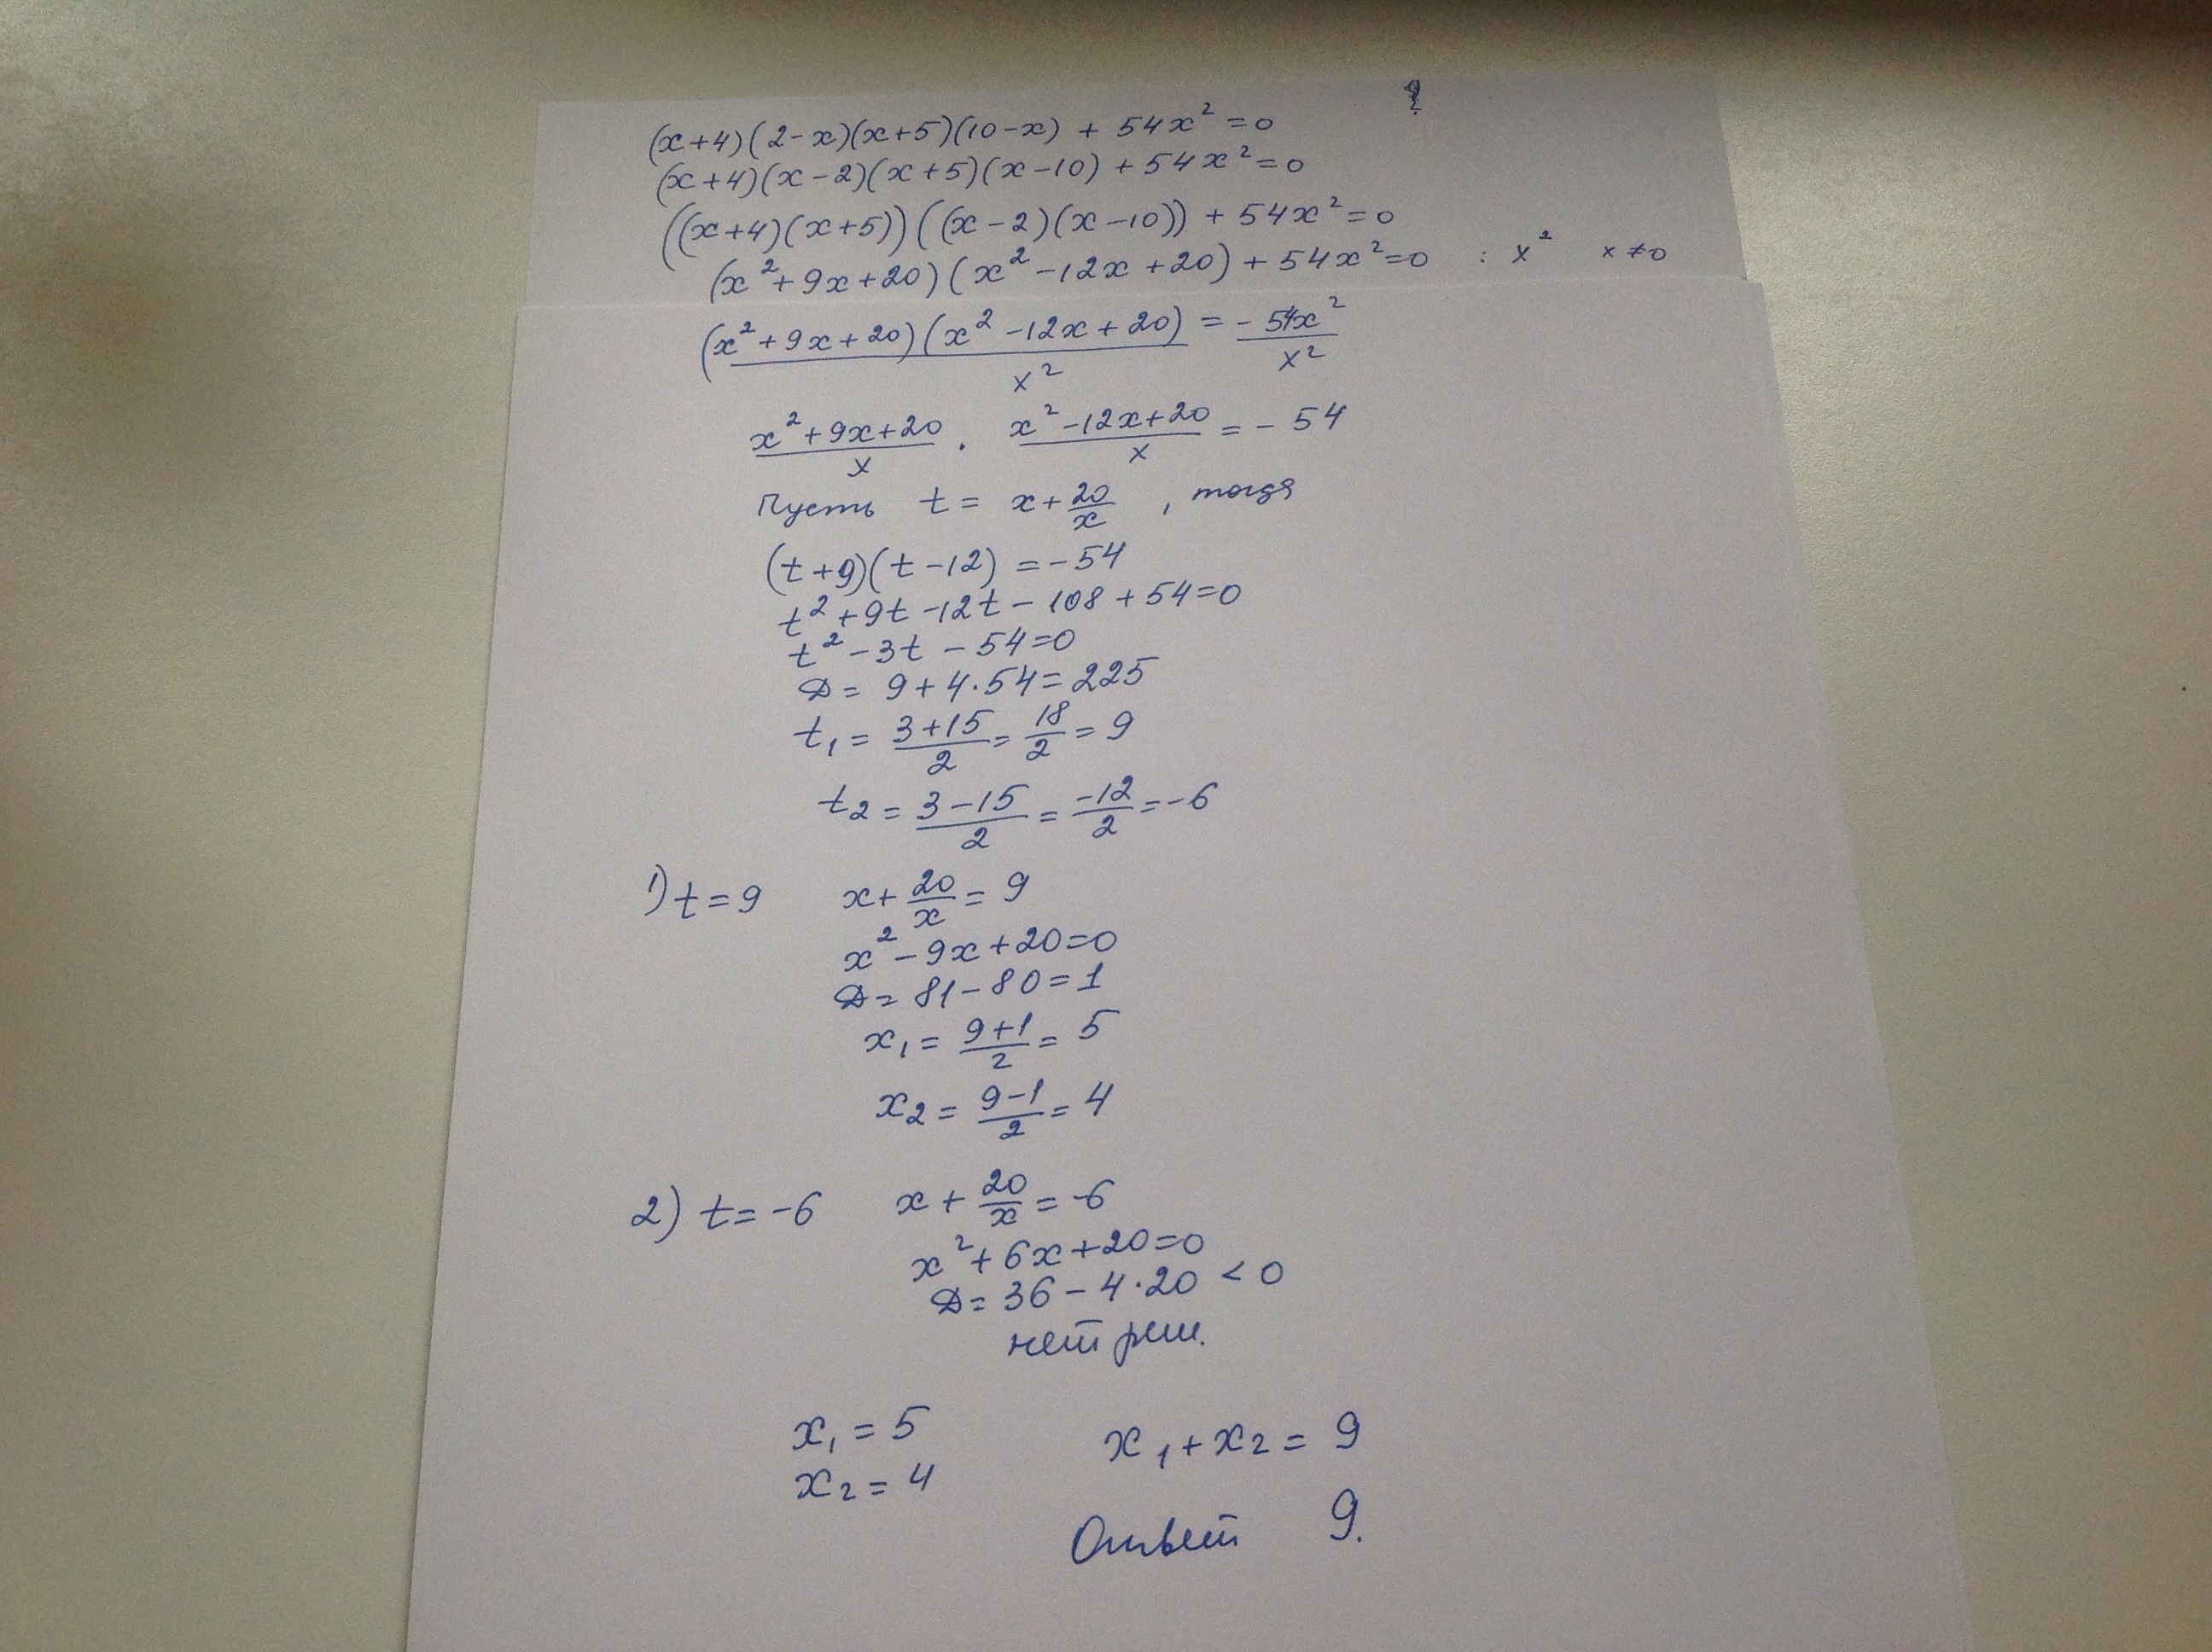 (x+4)(2-x)(x+5)(10-x) + 54x² = 0
(x+4)(x-2)(x+5)(x-10) + 54x² = 0
((x+4)(x+5))((x-2)(x-10)) + 54x² = 0
(x²+9x+20)(x²-12x+20) + 54x² = 0 : x² x≠0
(x²+9x+20)(x²-12x+20)/x² = -54x²/x²
(x²+9x+20)/x · (x²-12x+20)/x = -54
Пусть t = x + 20/x, тогда
(t+9)(t-12) = -54
t²+9t-12t-108+54=0
t²-3t-54=0
D = 9+4·54=225
t₁ = (3+15)/2 = 18/2 = 9
t₂ = (3-15)/2 = -12/2 = -6
1) t=9 x + 20/x = 9
x²-9x+20=0
D = 81-80=1
x₁ = (9+1)/2 = 5
x₂ = (9-1)/2 = 4
2) t=-6 x + 20/x = -6
x²+6x+20=0
D = 36-4·20 < 0
нет реш.
x₁ = 5
x₂ = 4
x₁+x₂ = 9
Ответ 9.